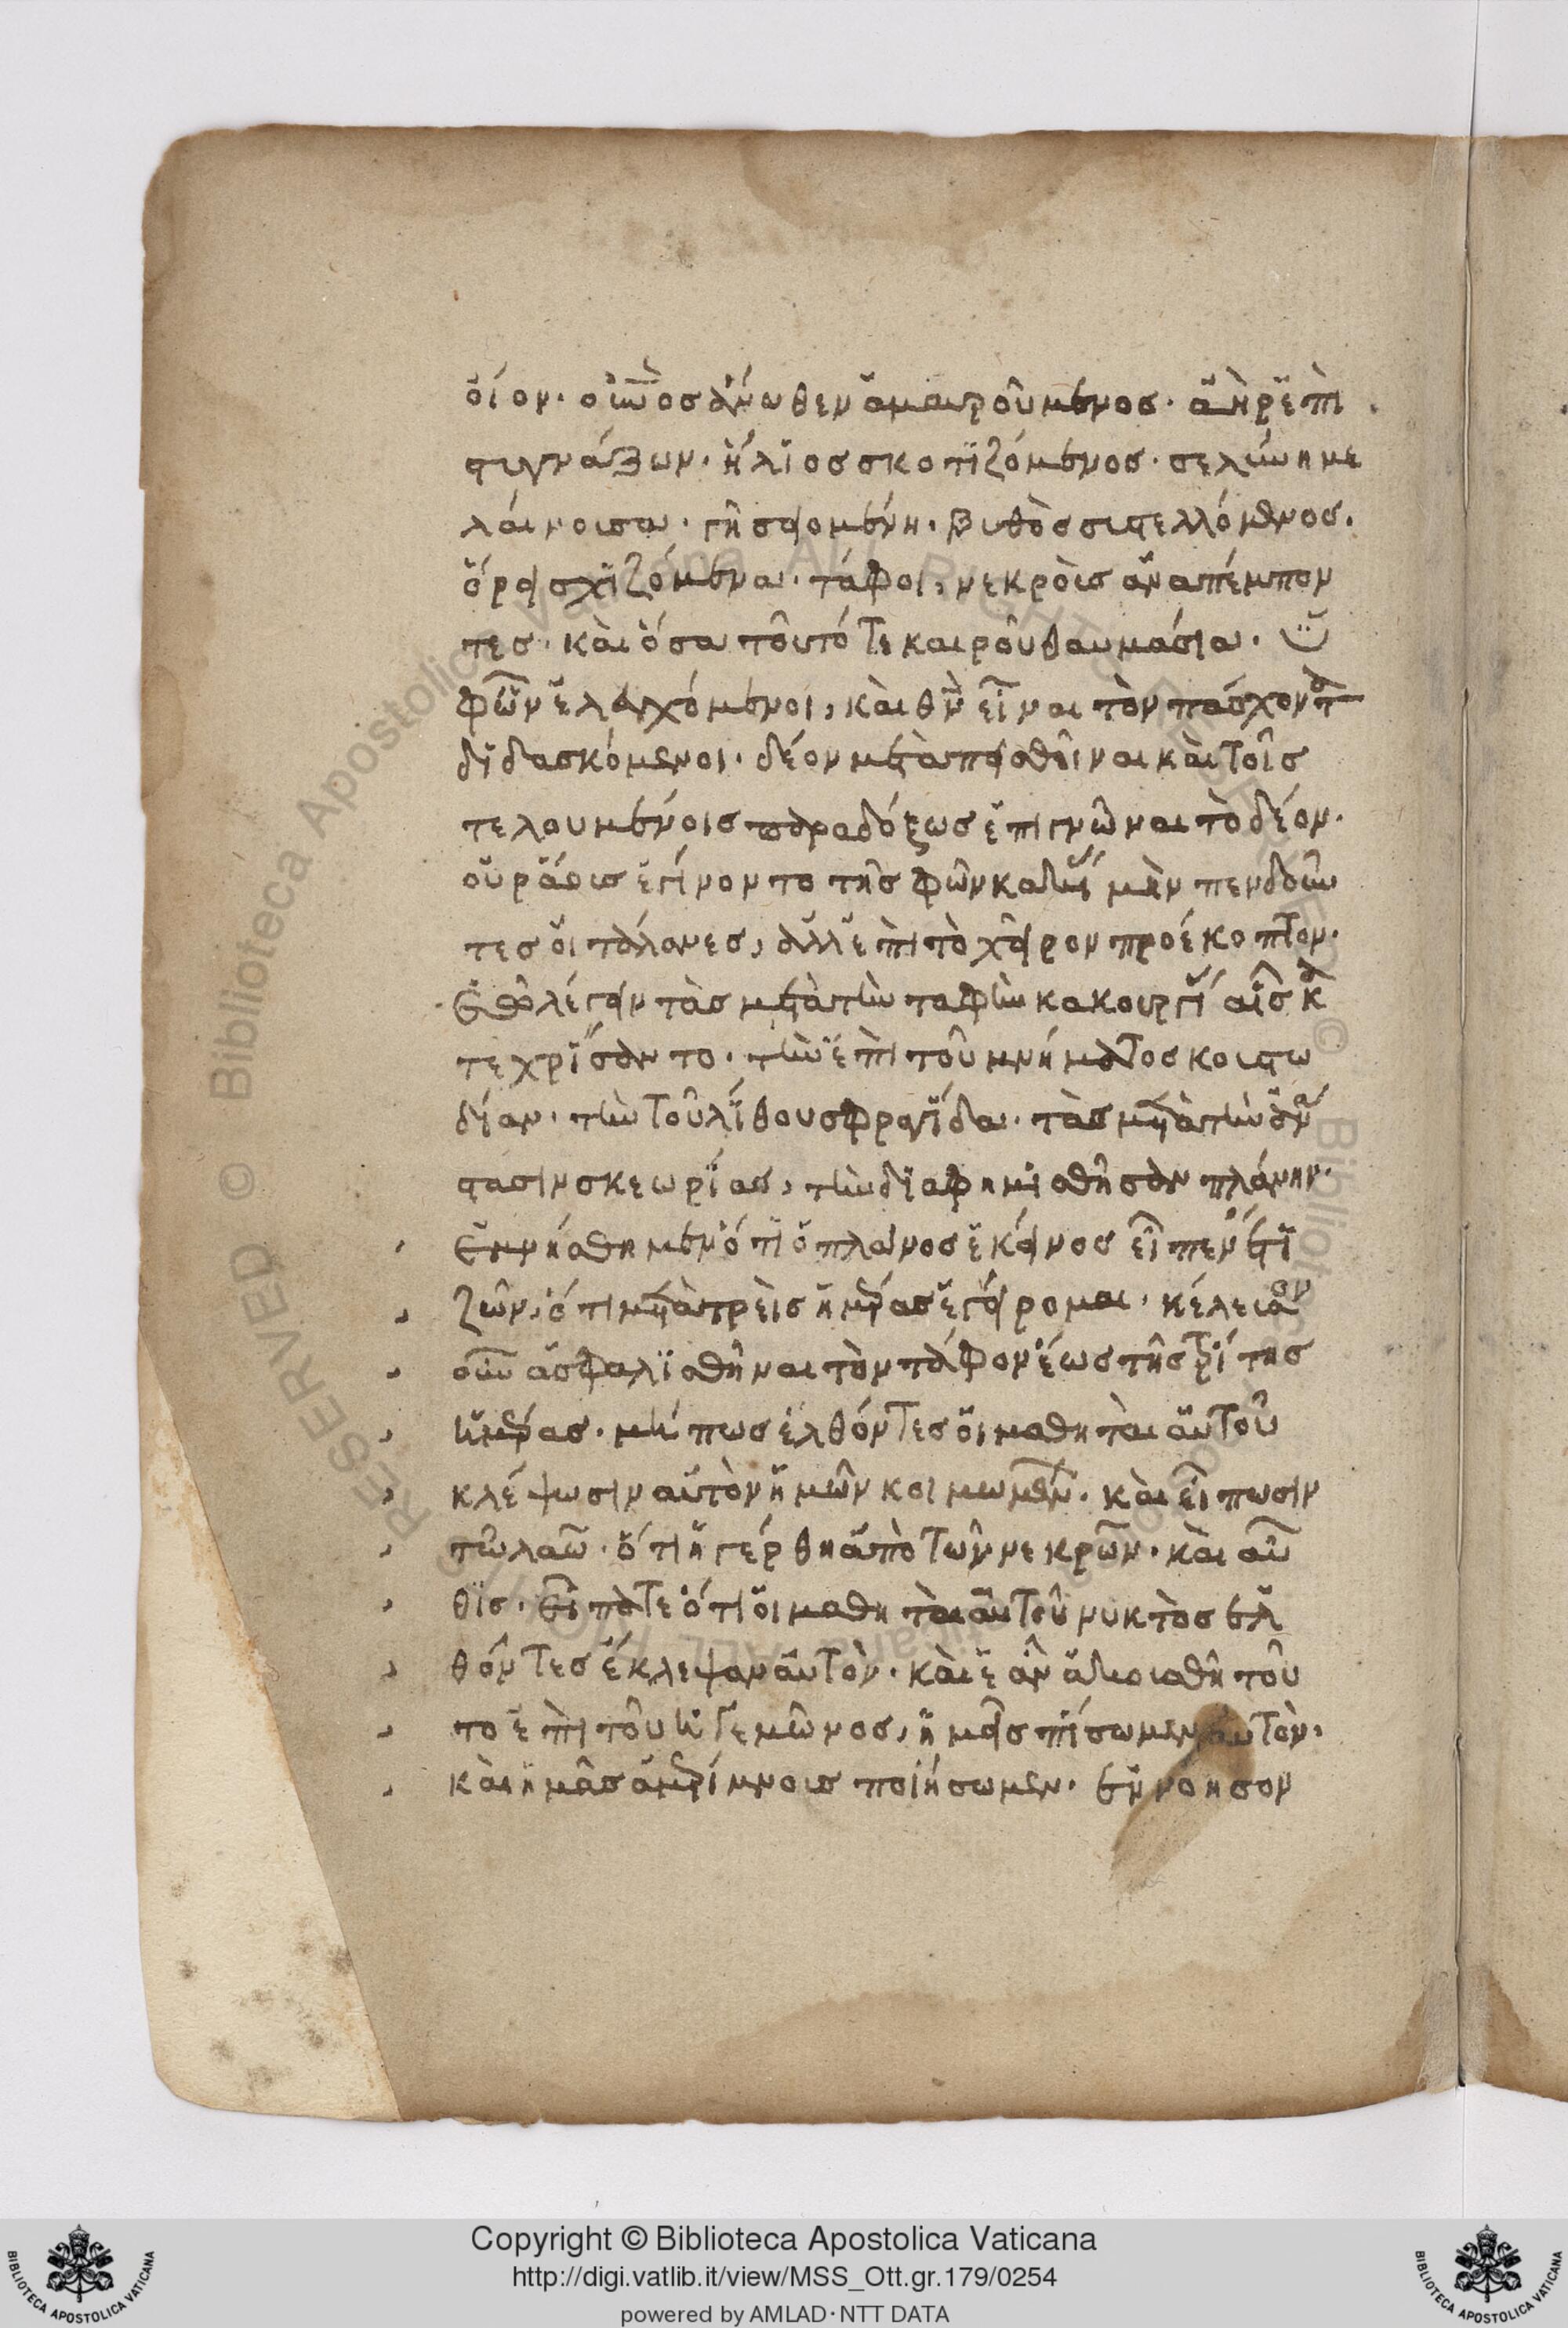 οἷον· οὐνὸς ἄνωθεν ἀμαυρούμενος· ἀὴρ ἐπι
στυγνάζων· ἥλιος σκοτιζόμενος· σελήνη με
λαίνουσα· γῆ σειομένη· βυθὸς συστελλόμενος·
ὄρη σχιζόμενα· τάφοι, νεκροὺς ἀναπέμπον
τες· καὶ ὅσα τοῦ τότε καιροῦ θαυμάσια· ὑ
φ' ὧν ἐλεγχόμενοι, καὶ θν εἶναι τὸν πάσχοντα
διδασκόμενοι· δέον μεταπεισθῆναι καὶ τοῖς
τελουμένοις παραδόξως ἐπιγνῶναι τὸ δέον·
οὐ ῥάους ἐγίνοντο τῆς φονικῆς
τες οἱ τάλανες, ἀλλ' ἐπὶ τὸ χεῖρον προέκοπτον·
Ἔθ λέγειν τὰς μετὰ τὴν ταφὴν κακουργίας αἷς κα
τεχρήσαντο· τὴν ἐπὶ τοῦ μνήματος κουστω
δίαν· τὴν τοῦ λίθου σφραγῖδα· τὰς μετὰ τὴν ἀνά
στασιν σκεωρίας, τὴν διαφημισθεῖσαν πλάνην·
Ἐμνήσθημεν ὅτι ὁ πλάνος ἐκεῖνος εἶπεν ἔτι
ζῶν, ὅτι μετὰ τρεῖς ἡμέρας ἐγείρομαι· κέλευσον
οὖν ἀσφαλισθῆναι τὸν τάφον ἕως τῆς τρίτης
ἡμέρας· μήπως ἐλθόντες οἱ μαθηταὶ αὐτοῦ
κλέψωσιν αὐτὸν ἡμῶν κοιμωμένων· καὶ εἴπωσιν
τῶ λαῶ· ὅτι ἠγέρθη ἀπὸ τῶν νεκρῶν· καὶ αὖ
θις· Εἴπατε ὅτι οἱ μαθηταὶ αὐτοῦ νυκτὸς ἐλ
θόντες ἔκλεψαν αὐτὸν· καὶ ἐὰν ἀκουσθῆ τοῦ
το ἐπὶ τοῦ ἡγεμῶνος, ἡμεῖς πείσωμεν αὐτὸν·
καὶ ἡμᾶς ἀμερίμνους ποιήσωμεν· ἐννόησον
Copyright © Biblioteca Apostolica Vaticana
http://digi.vatlib.it/view/MSS_Ott.gr.179/0254
powered by AMLAD·NTT DATA